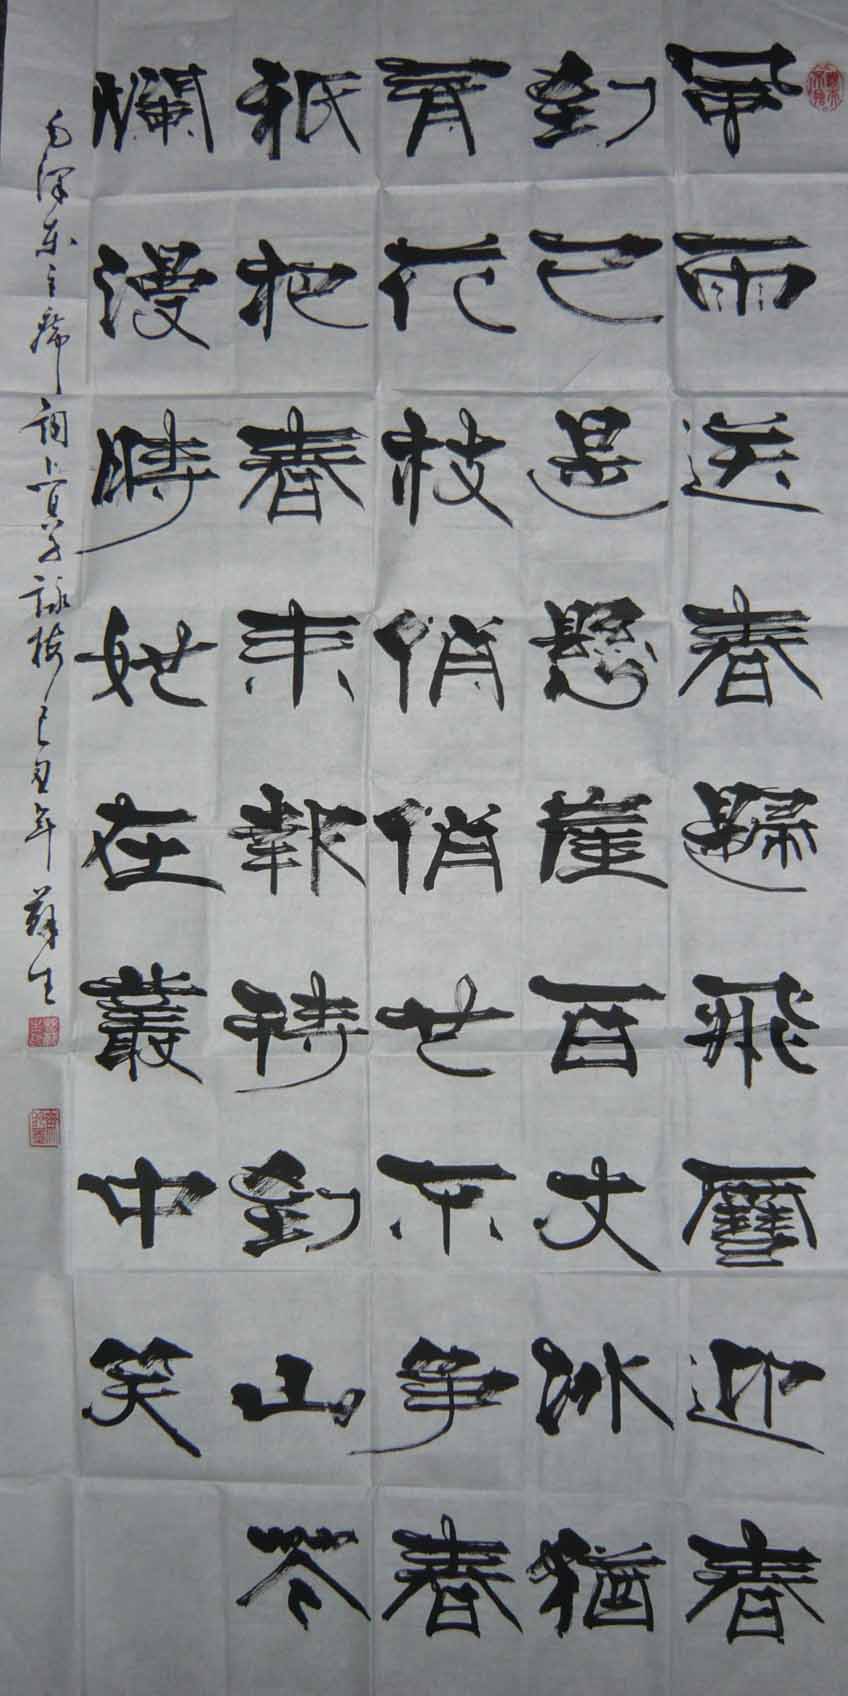 風雨送春歸飛雪迎春
到已是懸崖百丈冰猶
有花枝俏俏也不争春
祇把春來報待到山花
爛漫時她在叢中笑
毛澤東主席詞卜算子詠梅己丑年蘇生